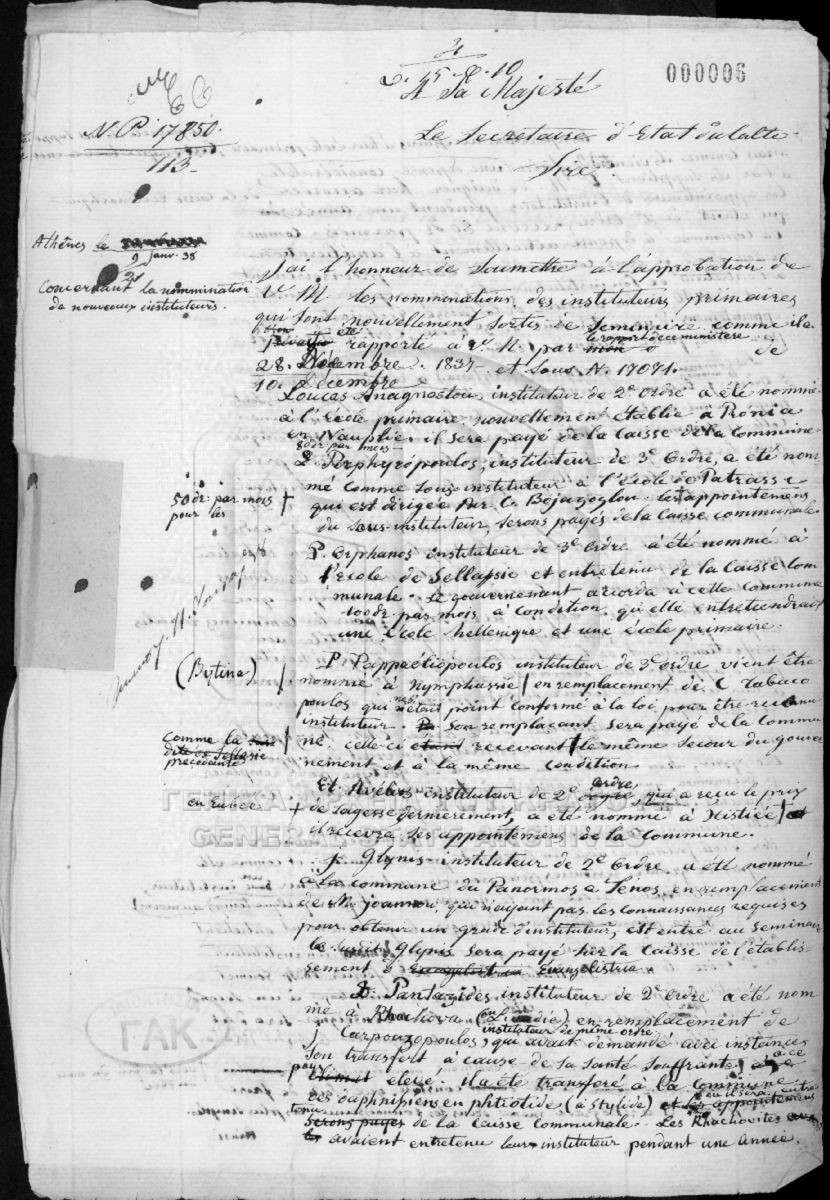 000006
A Sa Majesté
N. P. 17850.
113.
Le Secrétaire d'Etat du Culte
Sire
Athènes le
9 Janv. 38
21
Concernant la nommination
de nouveaux instituteurs.
J'ai l'honneur de Soumettre à l'approbation de
V. M. les nominations des instituteurs primaires
qui sont nouvellement sortis de Seminaire comme il a
été rapporté à V. M. par le rapport de ce ministère de
28. Décembre. 1837 et Sous N. 17071.
10. Décembre
Loucas Anagnostou, instituteur de 2e ordre a été nommé
à l'école primaire nouvellement établie à Pronia
en Nauplie. il sera payé de la Caisse de la Commune.
80 dr par mois
Perphyropoulos, instituteur de 3e Ordre, a été nom-
mé comme Sous instituteur à l'école de Patrass
50 dr: par mois
pour les
qui est dirigée par C. Bojazoglou. les appointemens
du Sous-instituteur, Serons payés de la Caisse communale.
P. Orphanos instituteur de 3e Ordre a été nommé à
l'école de Sellassie et entretenu de la Caisse Com-
munale. Le gouvernement accorda à cette Commune
100 dr. par mois, à condition, qu'elle entretiendrait
une école hellenique et une école primaire.
(Bytina)
P Pappaéliopoulos instituteur de 3e ordre vient être
nommé à Nymphassie en remplacement de C Tabaco
poulos qui n'était point conformé à la loi pour être reconnu
instituteur. Son remplaçant Sera payé de la Commu
Comme la
dite de Sellasie
précédante
ne. celle-ci étant recevant le même Secour du gouver
nement et à la même condition
instituteur de 2e ordre, qui a reçu le prix
en Eubée
de Sagesse dernierement, a été nommé à Xistiée
il recevra Ses appointemens de la Commune.
J. Glynis instituteur de 2e Ordre a été nommé
à la commune du Panormos a Tenos, en remplacement
de M. Joannou, qui n'ayant pas les connaissances requises
pour obtenir un grade d'instituteur, est entré au Seminaire
Glynis Sera payé Sur la Caisse de l'établis-
sement Evangelistria
Pantazides instituteur de 2e Ordre a été nom
mé à Rhachova en remplacement de
instituteur de même ordre
J Carpouzopoulos, qui avait demandé avec instances
Son transfert à cause de Sa Santé Souffrante à ce
pays élevé. il a été transferé à la Commune
des Daphnisiens en phtiotide (à Stylide) et les appointemens
où il sera entre
tenu
Serons payés de la Caisse Communale. Les Rhachovites
avaient entretenu leur instituteur pendant une année.
ΓΕΝΙΚΑ ΑΡΧΕΙΑ ΤΟΥ ΚΡΑΤΟΥΣ
GENERAL STATE ARCHIVES
ΓΑΚ